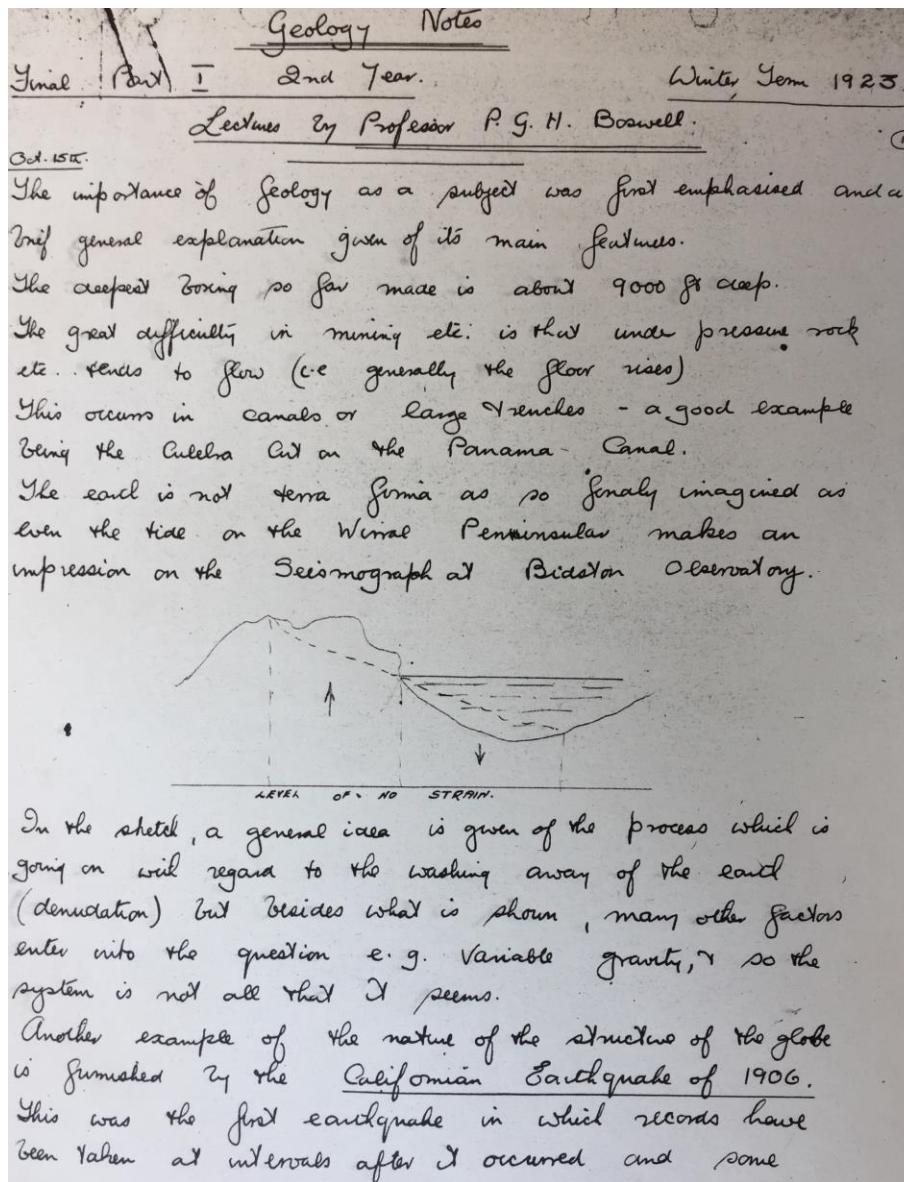 Geology Notes
Final Part I 2nd Year. Winter Term 1923
Lectures by Professor P. G. H. Boswell.
Oct. 15th.
The importance of Geology as a subject was first emphasised and a
brief general explanation given of its main features.
The deepest boring so far made is about 9000 ft deep.
The great difficulty in mining etc. is that under pressure rock
etc. tends to flow (i.e generally the floor rises)
This occurs in canals or large trenches - a good example
being the Culebra Cut on the Panama Canal.
The earth is not terra firma as so fondly imagined as
even the tide on the Wirral Penninsular makes an
impression on the Seismograph at Bidston Observatory.
LEVEL OF NO STRAIN.
In the sketch, a general idea is given of the process which is
going on with regard to the washing away of the earth
(denudation) but besides what is shown, many other factors
enter into the question e.g. Variable gravity, & so the
system is not all that it seems.
Another example of the nature of the structure of the globe
is furnished by the Californian Earthquake of 1906.
This was the first earthquake in which records have
been taken at intervals after it occurred and some